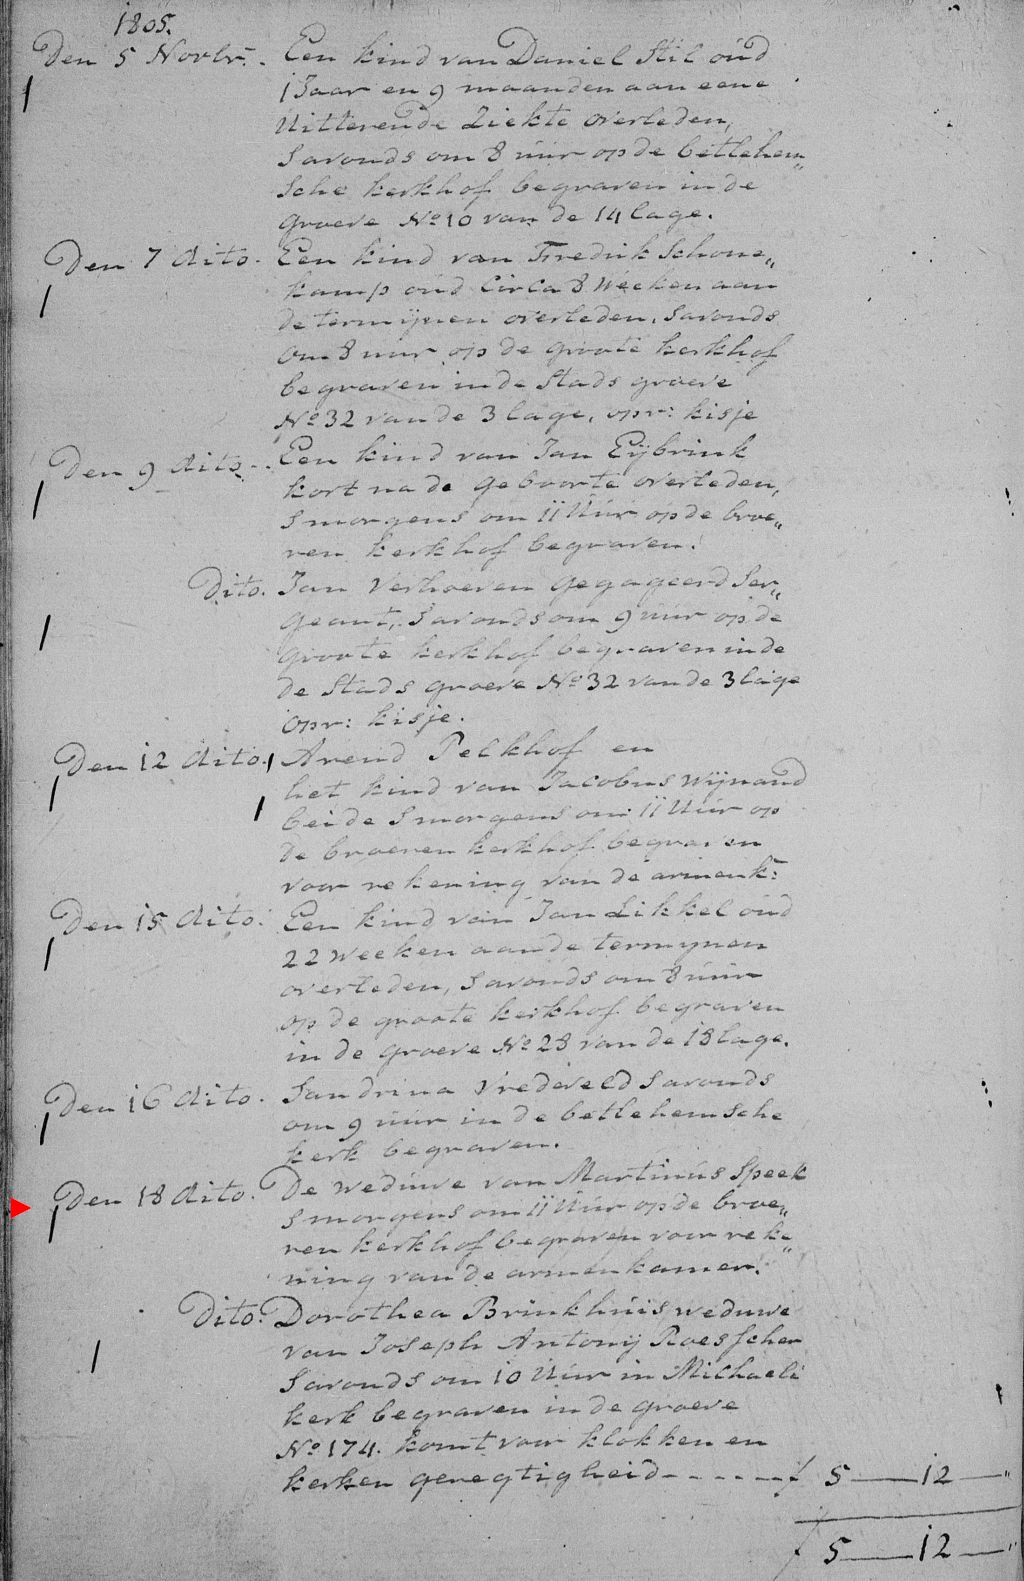 1805.
Den 5 Novbr. Een kind van Daniel Stil oud
1 Jaar en 9 maanden aan eene
Uitterende Ziekte overleden,
Savonds om 8 uur op de betlehem„
sche kerkhof begraven in de
groeve No 10 van de 14 lage.
Den 7 dito. Een kind van Fredrik Schone„
kamp oud Circa 8 Weeken aan
de termijnen overleden, Savonds
om 8 uur op de groote kerkhof
begraven in de Stads groeve
No 32 van de 3 lage, opr: kisje
Den 9 dito. Een kind van Jan Eijbrink
kort na de geboorte overleden,
Smorgens om 11 Uur op de broe„
ren kerkhof begraven.
Dito. Jan Verhoeven Gegageerd Ser„
geant, Savonds om 9 uur op de
groote kerkhof begraven in de
de Stads groeve No 32 van de 3 lage
opr: kisje.
Den 12 dito. Arend Pelkhof en
het kind van Jacobus Wijnand
beide Smorgens om 11 Uur op
de broeren kerkhof begraven
voor rekening van de armenk:
Den 15 dito. Een kind van Jan Likkel oud
22 weeken aan de termijnen
overleden, Savonds om 8 uur
op de groote kerkhof begraven
in de groeve No 28 van de 18 lage.
Den 16 dito. Sandrina Vredeveld Savonds
om 9 uur in de betlehemsche
kerk begraven.
Den 18 dito. De weduwe van Martinus Speek
Smorgens om 11 Uur op de broe„
ren kerkhof begraven voor reke„
ning van de armen kamer.
Dito. Dorothea Brinkhuis weduwe
van Joseph Antonij Roesscher
Savonds om 10 Uur in Michaeli
kerk begraven in de groeve
No 174. komt voor klokken en
kerken geregtigheid - - - - - - f 5 — 12 — „
f 5 — 12 — „